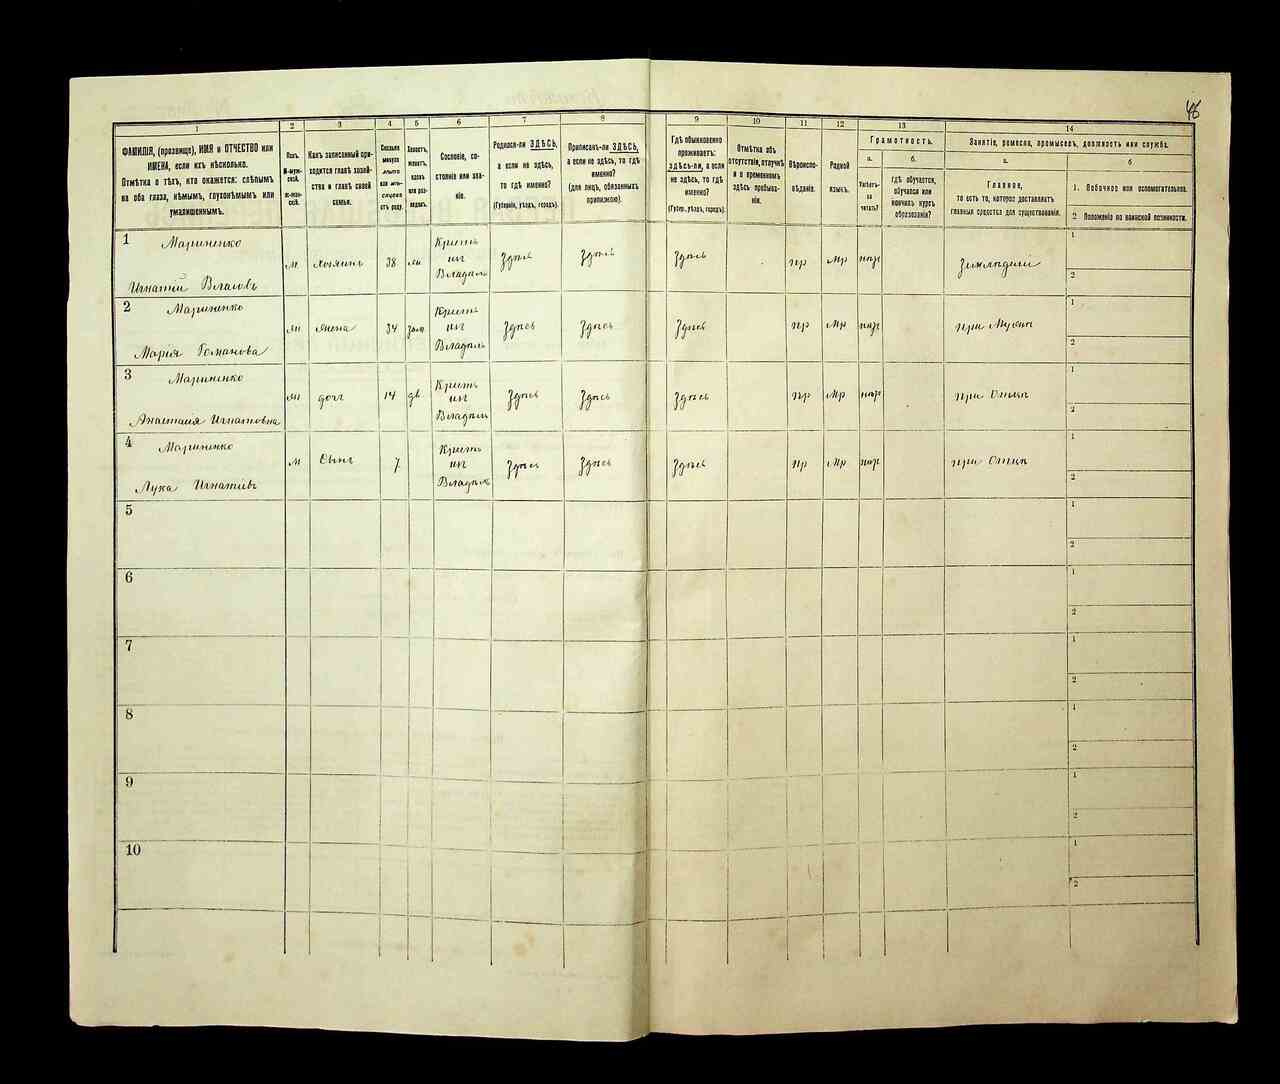 46
1
2
3
4
5
6
7
8
9
10
11
12
13
14
ФАМИЛІЯ, (прозвище), ИМЯ и ОТЧЕСТВО или
ИМЕНА, если ихъ нѣсколько.
Отмѣтка о тѣхъ, кто окажется: слѣпымъ
на оба глаза, нѣмымъ, глухонѣмымъ или
умалишеннымъ.
Полъ.
М-муж-
ской.
Ж-жен-
скій.
Какъ записанный при-
ходится главѣ хозяй-
ства и главѣ своей
семьи.
Сколько
минуло
лѣтъ
или мѣ-
сяцевъ
отъ роду.
Холостъ,
женатъ,
вдовъ
или раз-
веденъ.
Сословіе, со-
стояніе или зва-
ніе.
Родился-ли ЗДѢСЬ,
а если не здѣсь,
то гдѣ именно?
(Губернія, уѣздъ, городъ).
Приписанъ-ли ЗДѢСЬ,
а если не здѣсь, то гдѣ
именно?
(для лицъ, обязанныхъ
припискою).
Гдѣ обыкновенно
проживаетъ:
здѣсь-ли, а если
не здѣсь, то гдѣ
именно?
(Губер., уѣздъ, городъ).
Отмѣтка объ
отсутствіи, отлучкѣ
и о временномъ
здѣсь пребыва-
ніи.
Вѣроиспо-
вѣданіе.
Родной
языкъ.
Грамотность.
а.
б.
Умѣетъ-
ли
читать?
гдѣ обучается,
обучался или
кончилъ курсъ
образованія?
Занятіе, ремесло, промыселъ, должность или служба.
а.
б
Главное,
то есть то, которое доставляетъ
главныя средства для существованія.
1. Побочное или вспомогательное.
2 Положеніе по воинской повинности.
1 Мариненко
Игнатій Власовъ
м
хозяинъ
38
Здѣсь
Здѣсь
Здѣсь
пр
мр
1
2
2 Мариненко
Марія Романова
жена
34
Здѣсь
Здѣсь
Здѣсь
пр
мр
при Мужѣ
1
2
3 Мариненко
Анастасія Игнатовна
доч
14
дѣ
Здѣсь
Здѣсь
Здѣсь
пр
мр
при Отцѣ
1
2
4 Мариненко
Лука Игнатьевъ
м
Сынъ
7
Здѣсь
Здѣсь
Здѣсь
пр
мр
при Отцѣ
1
2
5
2
6
1
2
7
1
2
8
1
2
9
1
2
10
1
2